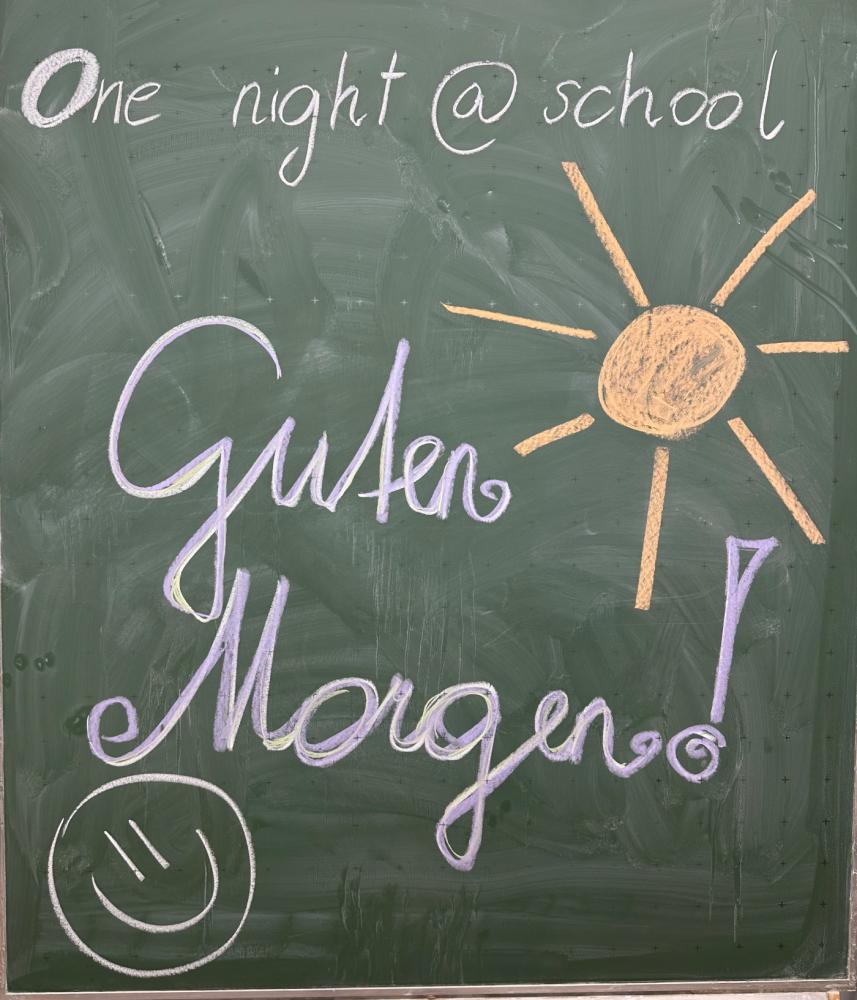 One night @ school
Guten
Morgen!